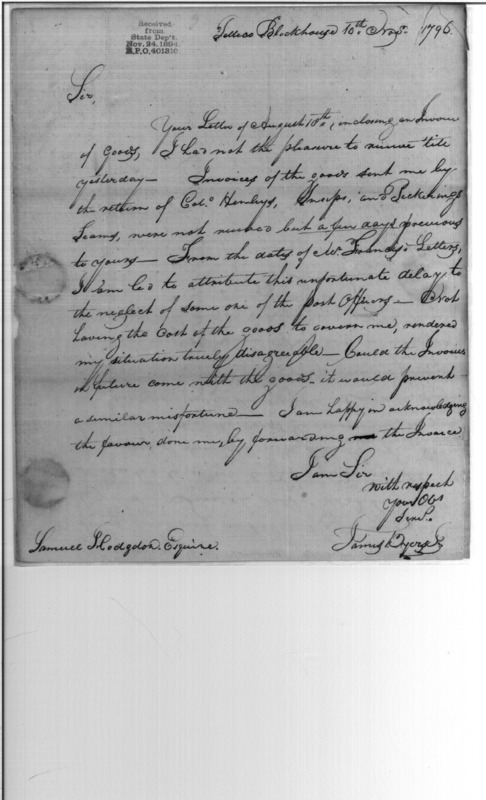 Received
from
State Dep't.
Nov. 24, 1894
R.P.O. 401310.
Tellico Blockhouse 10th Novr. 1796.
Sir,
Your Letter of August 18th, inclosing an Invoice
of Goods, I had not the pleasure to receive till
yesterday — Invoices of the goods sent me by
the return of Colo. Henleys, Sharps, and Pickerings
Teams, were not received but a few days previous
to yours — From the dates of Mr. Francis's Letters,
I am led to attribute this unfortunate delay to
the neglect of some one of the post Officers — Not
having the Cost of the goods to govern me, rendered
my situation truely disagreeable — Could the Invoices
in future come with the goods - it would prevent
a similar misfortune — I am happy in acknowledging
the favour done me, by forwarding the Invoice
I am Sir
with respect
your Obt
Servt.
James Byers
Samuel Hodgdon, Esquire.